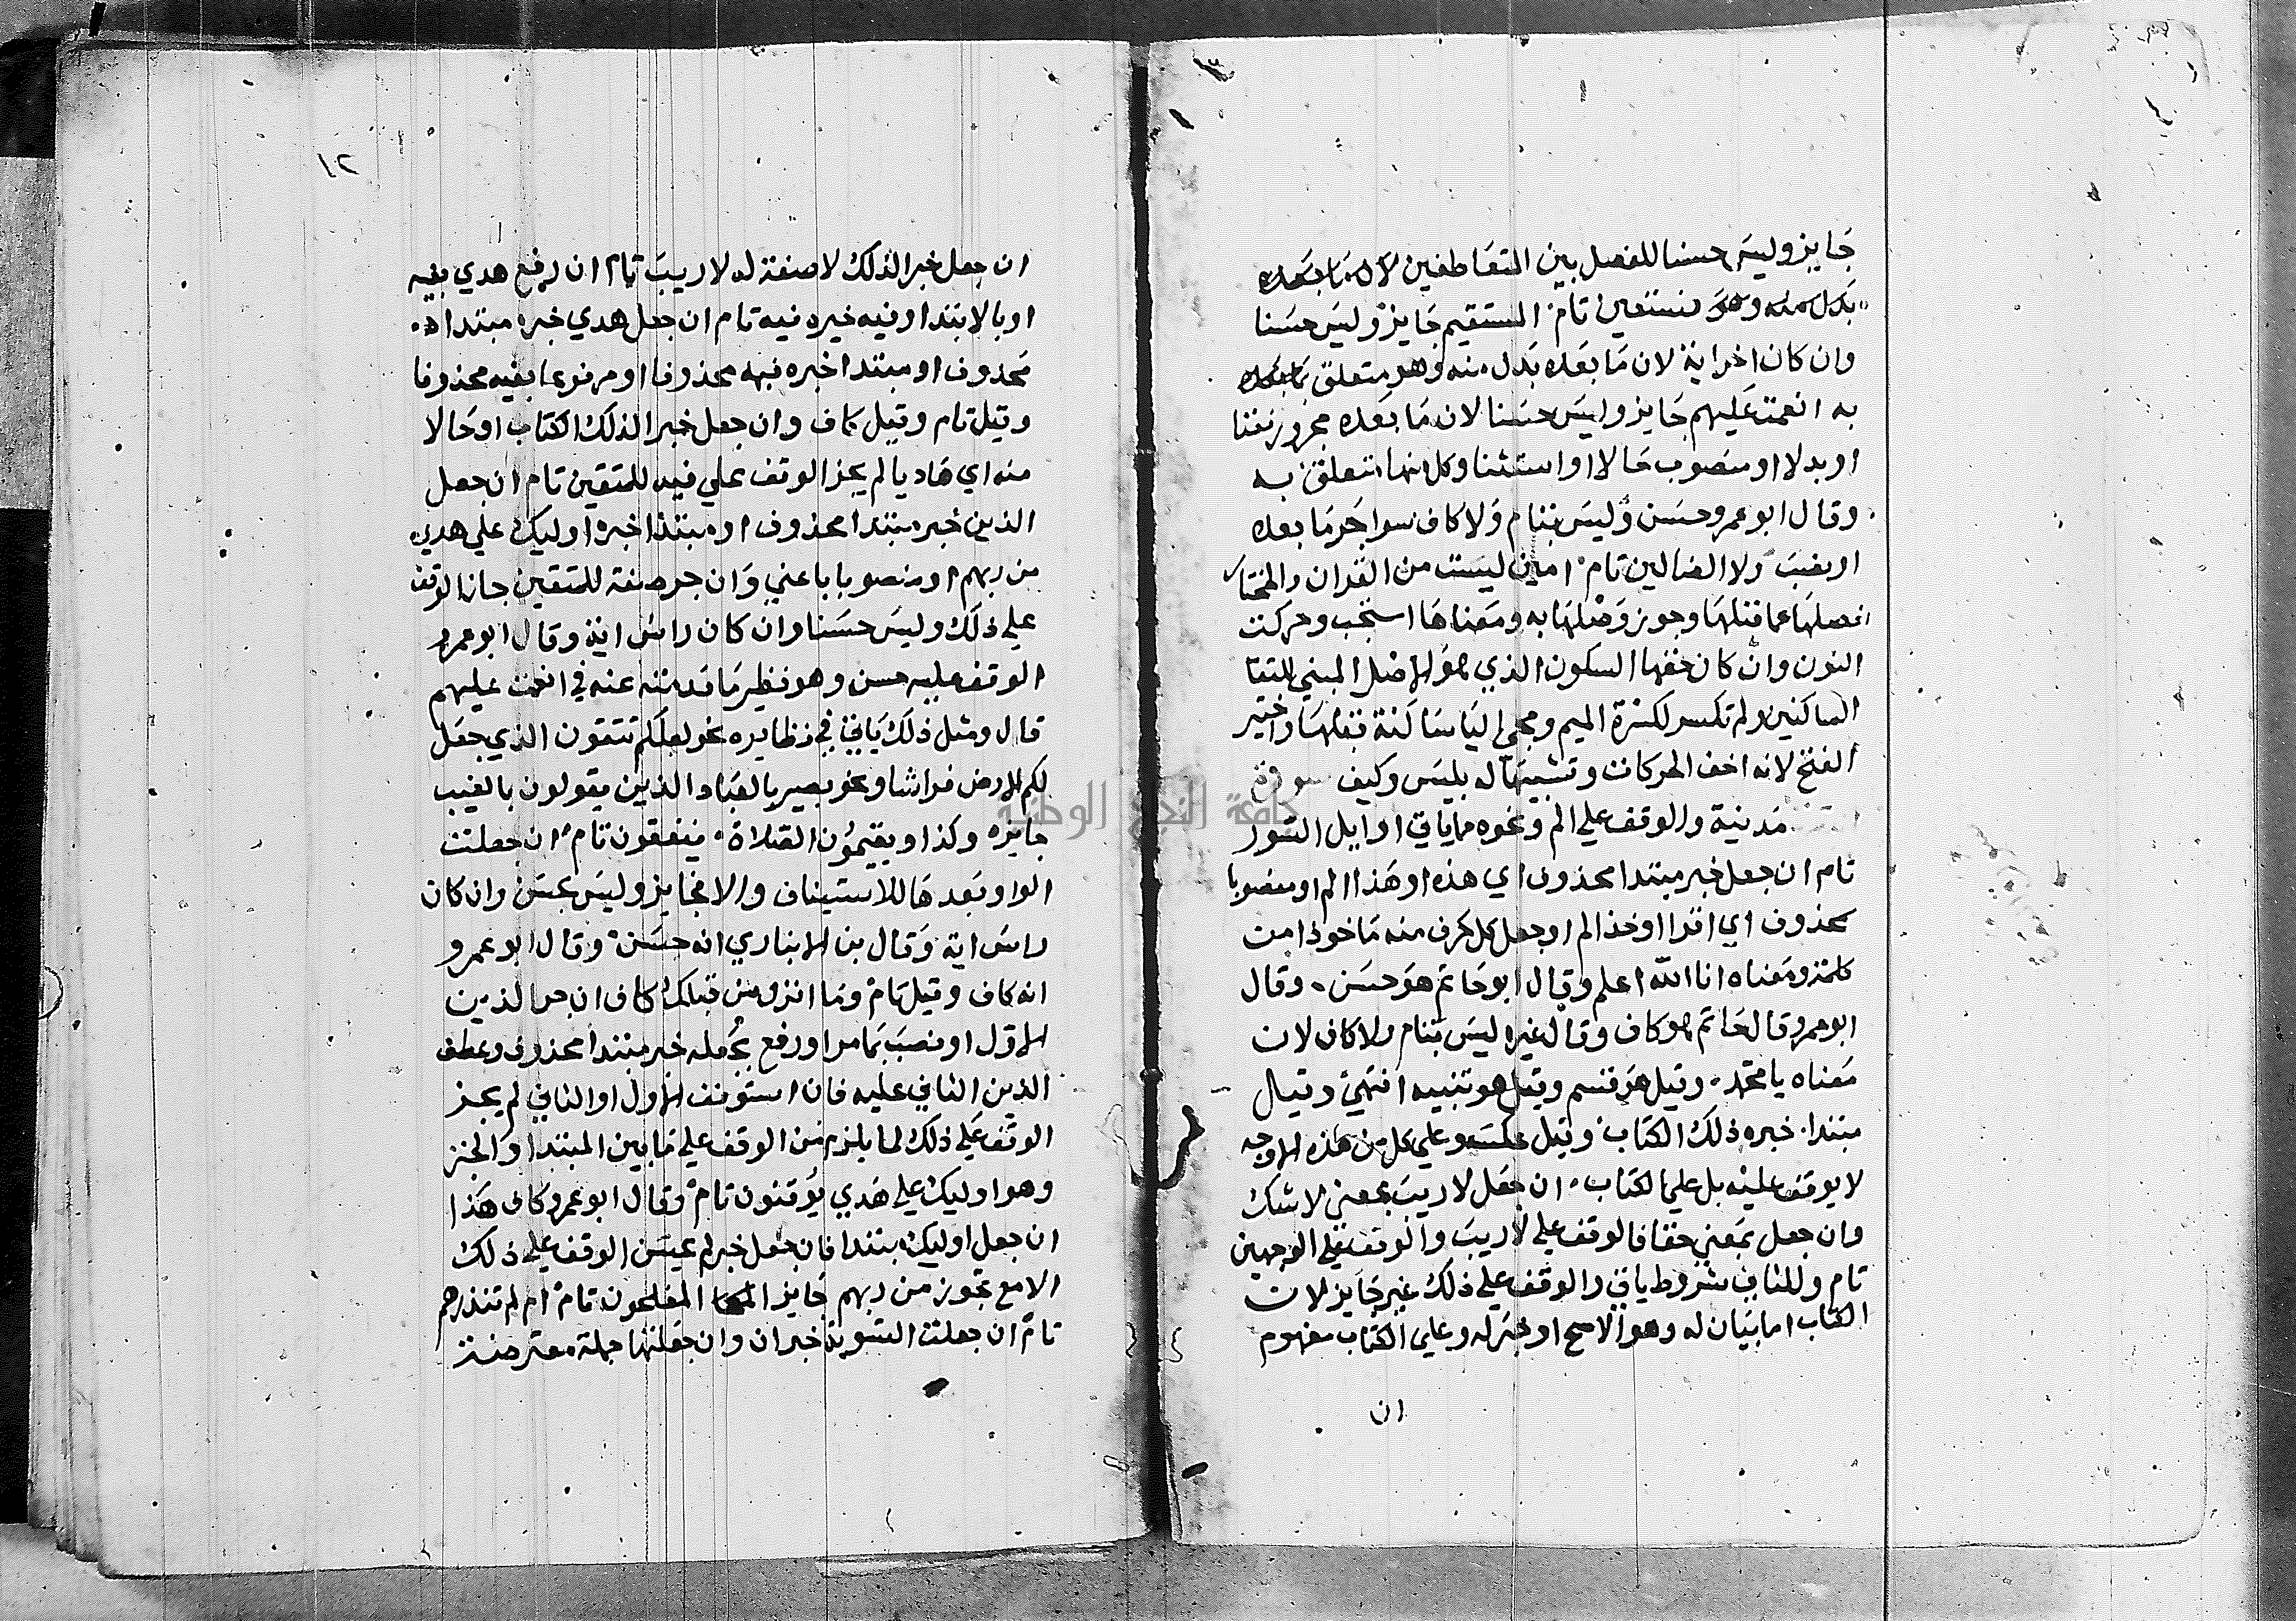 جايز وليس حسنا للفصل بين المتعاطفين لا لان ما بعده
بدل منه و نستعين تام المستقيم جايز وليس حسنا
وان كان اخر اية لان ما بعده بدل منه وهو متعلق
به انعمت عليهم جايز وليس حسنا لان ما بعده مجرور نعتا
او بدلا او منصوب حالا او استثنا وكل منها متعلق به
وقال ابو عمرو حسن وليس بتام ولا كاف سوا جر ما بعده
او نصب ولا الضالين تام امين ليست من القران والمختار
فصلها عما قبلها وجوز وصلها به ومعناها استجب وحركت
النون وان كان حقها السكون الذي هو الاصل المبني للتقا
الساكنين ولم تكسر لكسرة الميم ومجي اليا ساكنة قبلها واختير
الفتح لانه اخف الحركات وتشبيها له بليس وكيف سورة
مدنية والوقف علي الم ونحوه مما ياتي اوايل السور
تام ان جعل خبر مبتدا محذوف اي هذه او هذا الم او منصوبا
بمحذوف اي اقرا او خذ الم او جعل كل حرف منه ماخوذا من
كلمة ومعناه انا الله اعلم وقال ابو حاتم هو حسن وقال
ابو عمرو قال حاتم هو كاف وقال غيره ليس بتام ولا كاف لان
معناه يا محمد وقيل هو قسم وقيل هو تنبيه انتهي وقيل
مبتدا خبره ذلك الكتاب وقيل عكسه وعلي كل من هذه الاوجه
لا يوقف عليه بل علي الكتاب ان جعل لا ريب بمعني لا شك
وان جعل بمعني حقا فالوقف علي لا ريب والوقف علي الوجهين
تام وللثاني شروط ياتي والوقف علي ذلك غير جايز لان
الكتاب اما بيان له وهو الاصح او خبر له وعلي الكتاب مفهوم
ان
١٢
ان جعل خبر الذلك لا صفة له لا ريب تام ان رفع هدي بفيه
او بالابتدا وفيه خبره فيه تام ان جعل هدي خبر مبتدا
محذوف او مبتدا خبره فيه محذوفا او مرفوعا بفيه محذوفا
وقيل تام وقيل كاف وان جعل خبر الذلك الكتاب او حالا
منه اي هاديا لم يجز الوقف علي فيه للمتقين تام ان جعل
الذين خبر مبتدا محذوف او مبتدا خبره اوليك علي هدي
من ربهم او منصوبا باعني وان جر صفة للمتقين جاز الوقف
علي ذلك وليس حسنا وان كان راس اية وقال ابو عمرو
الوقف عليه حسن وهو نظير ما قدمته عنه في انعمت عليهم
قال ومثل ذلك ياتي في نظايره نحو لعلكم تتقون الذي جعل
لكم الارض فراشا ونحو بصير بالعباد الذين يقولون بالغيب
جايز وكذا ويقيمون الصلاة ينفقون تام ان جعلت
الواو بعدها للاستيناف والا فجايز وليس بحسن وان كان
راس اية وقال بن الانباري انه حسن وقال ابو عمرو
انه كاف وقيل تام وما انزل من قبلك كاف ان جر الذين
الاول او نصب بما مر او رفع بجعله خبر مبتدا محذوف وعطف
الذين الثاني عليه فان استونف الاول او الثاني لم يجز
الوقف علي ذلك لما يلزم من الوقف علي ما بين المبتدا والخبر
وهو اوليك علي هدي يوقنون تام وقال ابو عمرو كاف هذا
ان جعل اوليك مبتدا فان جعل خبر لم يحسن الوقف علي ذلك
الا مع تجوز من ربهم جايز المفلحون تام ام لم تنذرهم
تام ان جعلت التسوية خبر ان وان جعلتها جملة معترضة